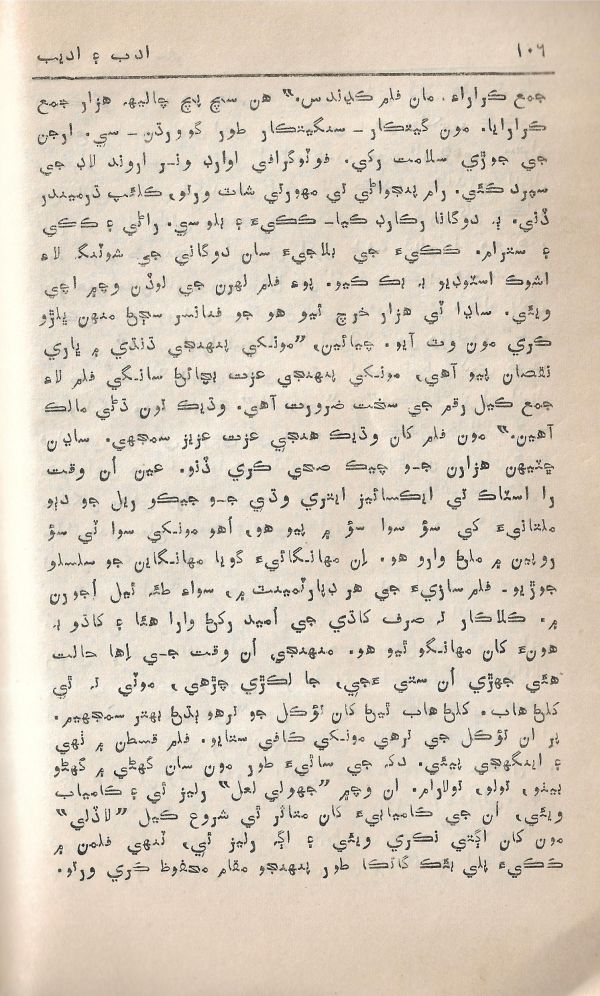 ١٠٦ ادب ۽ اديب
جمع ڪراراء. مان فلم ڪڍندس.“ هن سچ پچ چاليهه هزار جمع
ڪرارايا. مون گيتڪار – سنگيتڪار طور گوورڌن – سي. ارجن
جي جوڙي سلامت رکي. فوٽوگرافي اوارڊ ونر اروند لاڊ جي
سپرد ڪئي. رام پنجواڻي تي مهورتي شاٽ ورتو، ڪلئپ ڌرميندر
ڏني. ٻه دوگانا رڪارڊ ڪيا – ڪڪيءَ ۽ بلو سي. راڻي ۽ ڪڪي
۽ سترام. ڪڪيءَ جي بلاجيءَ سان دوگاني جي شوٽنگ لاءِ
اشوڪ اسٽوڊيو به بڪ ڪيو. پوءِ فلم لهرن جي لوڏن وچ ۾ اچي
ويئي. ساڍا ٽي هزار خرچ ٿيو هو جو فنانسر سڄڻ منهن ڀلڙو
ڪري مون وٽ آيو. چيائين، ”مونکي پنهنجي ڌنڌي ۾ ڀاري
نقصان پيو آهي، مونکي پنهنجي عزت بچائڻ سانگي فلم لاءِ
جمع ڪيل رقم جي سخت ضرورت آهي. وڌيڪ تون ڌڻي مالڪ
آهين.“ مون فلم کان وڌيڪ هنجي عزت عزيز سمجهي. ساڍن
ڇٽيهن هزارن جو چيڪ صحي ڪري ڏنو. عين اُن وقت
را اسٽاڪ تي ايڪسائيز ايتري وڌي جو جيڪو ريل جو دٻو
ملتانيءَ کي سؤ سوا سؤ ۾ پيو هو، اُهو مونکي سوا ٽي سؤ
روپين ۾ ملڻ وارو هو. اِن مهانگائيءَ گويا مهانگاين جو سلسلو
جوڙيو – فلمسازيءَ جي هر ڊپارٽمينٽ ۾، سواءِ طئه ٿيل اُجورن
۾. ڪلاڪار نه صرف کاڌي جي اُميد رکڻ وارا هئا ۽ کاڌو به
هونءَ کان مهانگو ٿيو هو. منهنجي اُن وقت جي اِها حالت
هئي جهڙي اُن ستي ءَجي، جا لڪڙي چڙهي، موٽي نه ٿي
ڪلڻهاب. ڪلڻهاب ٿيڻ کان ٽؤڪل جو ترهو ٻڌڻ بهتر سمجهيم.
پر ان ٽؤڪل جي ترهي مونکي ڪافي ستايو. فلم قسطن ۾ ٺهي
۽ اينگهجي پيئي. دک جي ساٿيءَ طور مون سان گهڻي ۾ گهڻو
ڀينو، تولو، تولارام. ان وچ ۾ ”جهولي لعل“ رليز ٿي ۽ ڪامياب
ويئي، اُن جي ڪاميابيءَ کان متاثر ٿي شروع ڪيل ”لاڏلي“
مون کان اڳتي نڪري ويئي ۽ اڳ رليز ٿي، تنهي فلمن ۾
ڪڪيءَ پلي بئڪ گائڪا طور پنهنجو مقام محفوظ ڪري ورتو.